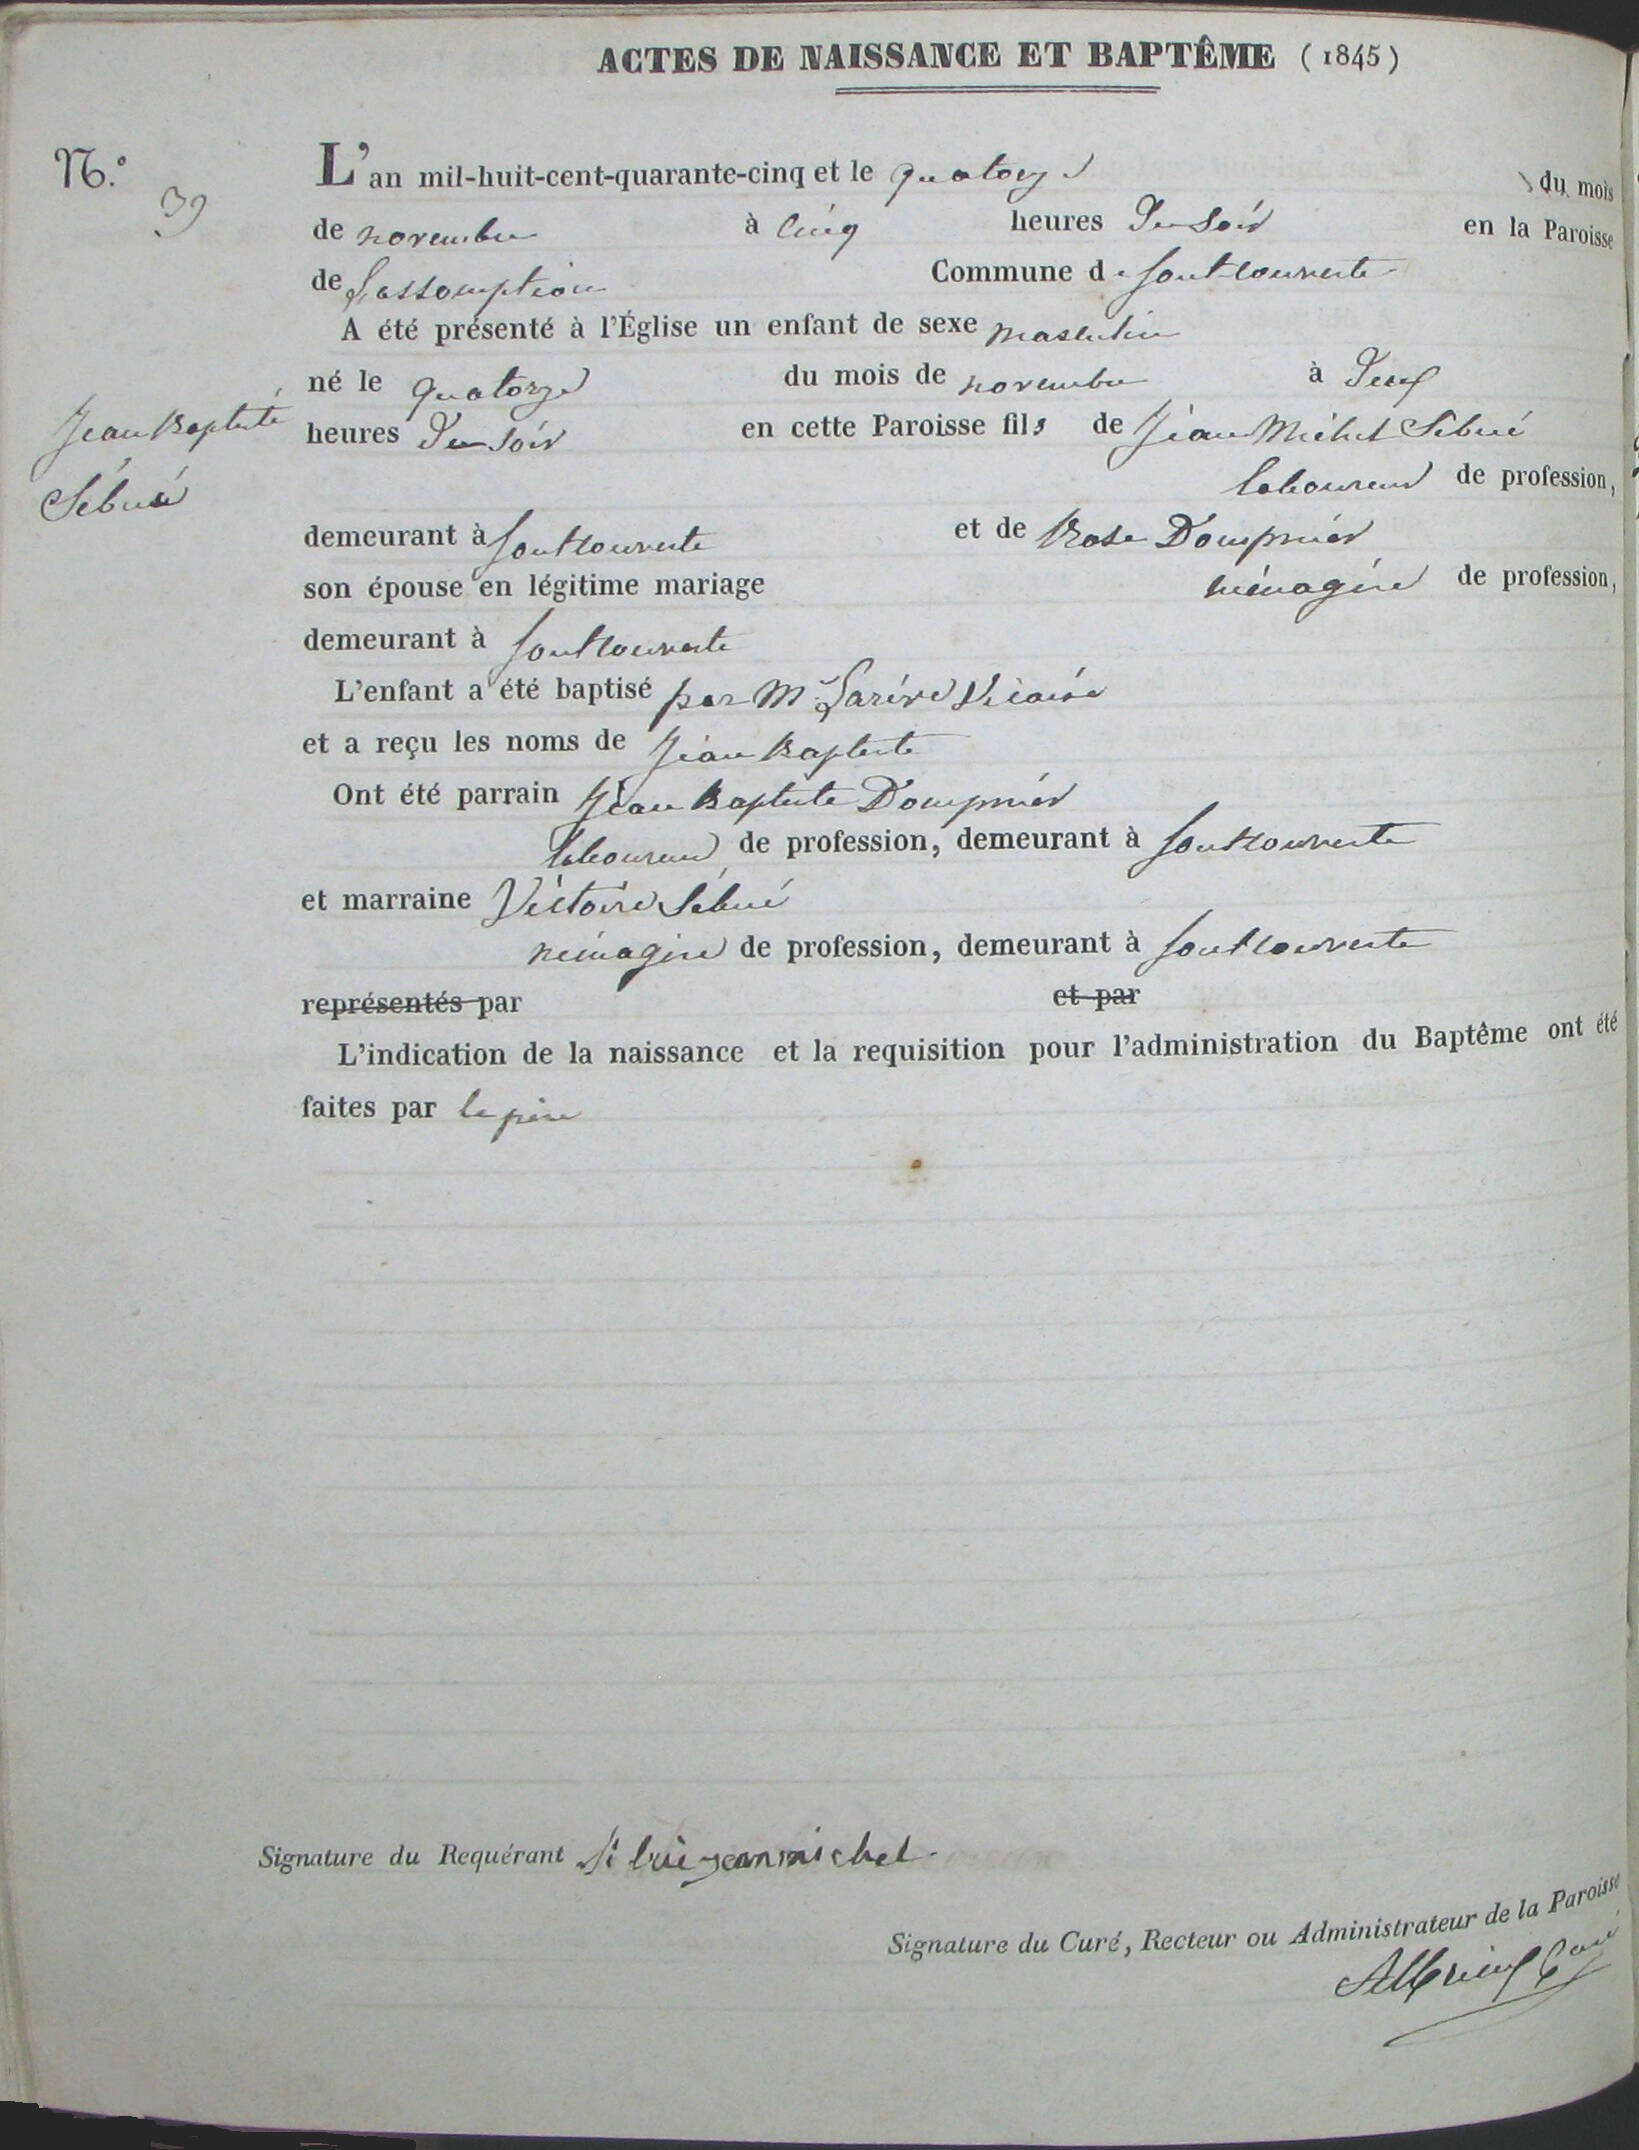 ACTES DE NAISSANCE ET BAPTÊME (1845)
N.º 39
L'an mil-huit-cent-quarante-cinq et le quatorze du mois
de novembre à cinq heures Du Soir en la Paroisse
de Lassomption Commune de fontcouverte
A été présenté à l'Église un enfant de sexe masculin
né le quatorze du mois de novembre à Deux
Jean Baptiste
heures Du Soir en cette Paroisse fils de Jean Michel Sibué
Sibué
laboureur de profession,
demeurant à fontcouverte et de Rose Dompnier
son épouse en légitime mariage ménagère de profession,
demeurant à fontcouverte
L'enfant a été baptisé par Mr Larive Vicaire
et a reçu les noms de Jean Baptiste
Ont été parrain Jean Baptiste Dompnier
laboureur de profession, demeurant à fontcouverte
et marraine Victoire Sibué
ménagère de profession, demeurant à fontcouverte
représentés par et par
L'indication de la naissance et la requisition pour l'administration du Baptême ont été
faites par le père
Signature du Requérant Sibué jean michel
Signature du Curé, Recteur ou Administrateur de la Paroisse
Curé